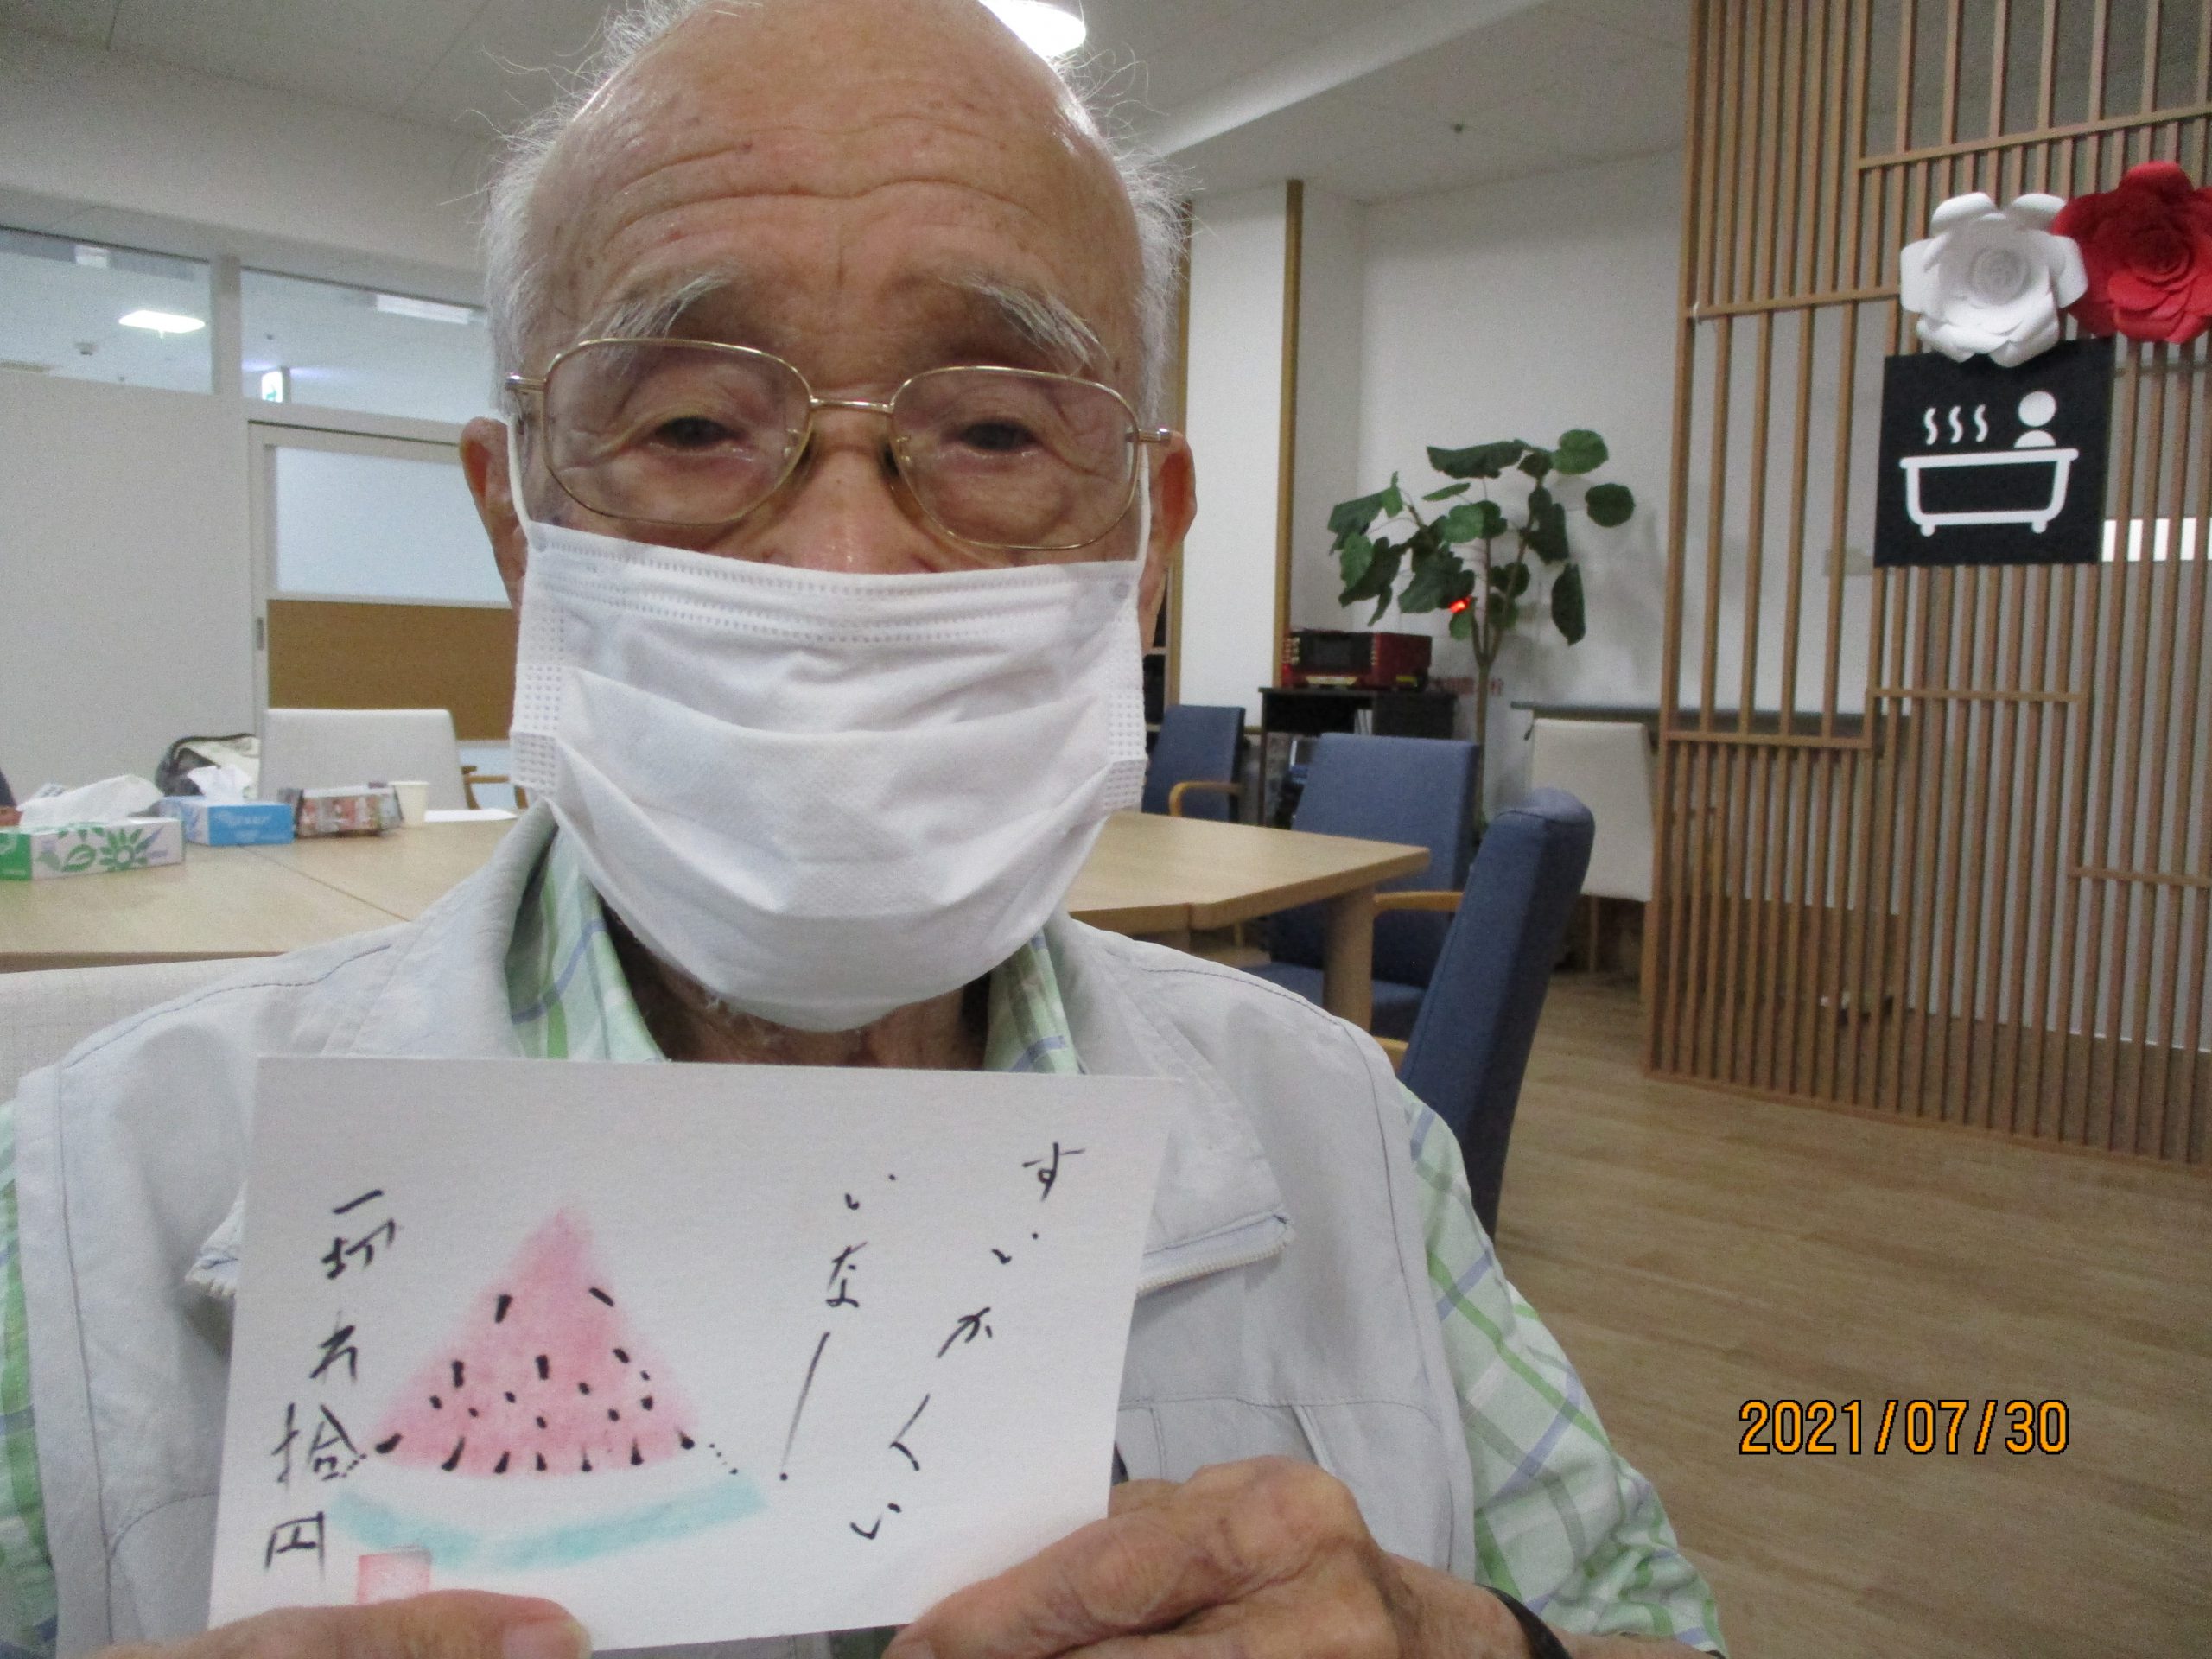 すいかくい
いなー
一切れ拾円
2021/07/30